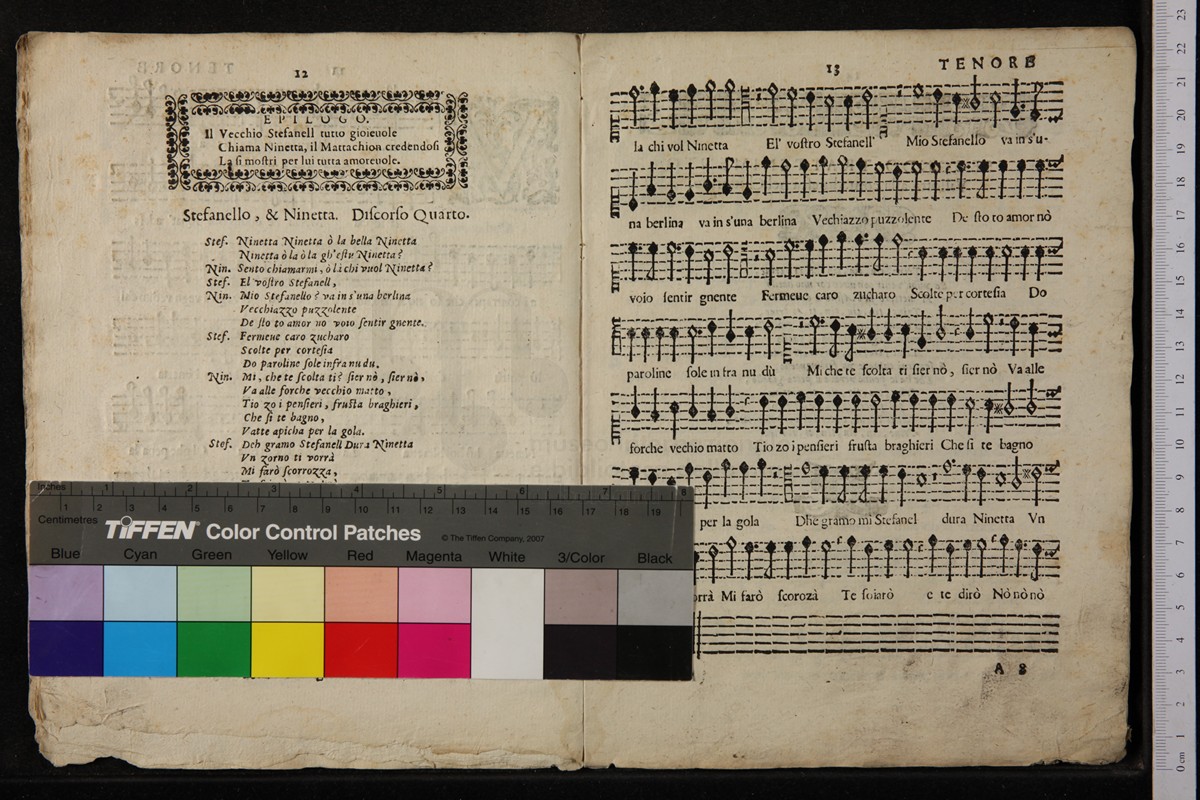 12
EPILOGO.
Il Vecchio Stefanell tutto gioieuole
Chiama Ninetta, il Mattachion credendosi
La si mostri per lui tutta amoreuole.
Stefanello, & Ninetta. Discorso Quarto.
Stef. Ninetta Ninetta ò la bella Ninetta
Ninetta ò la ò la gh'estu Ninetta?
Nin. Sento chiamarmi, ò li chi vuol Ninetta?
Stef. El vostro Stefanell,
Nin. Mio Stefanello? va in s'una berlina
Vecchiazzo puzzolente
De sto to amor no voio sentir gnente.
Stef. Fermeue caro zucharo
Scolte per cortesia
Do paroline sole infra nu du.
Nin. Mi, che te scolta ti? sier nò, sier nò,
Va alle forche vecchio matto,
Tio zo i pensieri, frusta braghieri,
Che si te bagno,
Vatte apicha per la gola.
Stef. Deh gramo Stefanell Dura Ninetta
Vn zorno ti vorrà
Mi farò scorrozza,
13
TENORE
la chi vol Ninetta El' vostro Stefanell' Mio Stefanello va in s'u-
na berlina va in s'una berlina Vechiazzo puzzolente De sto to amor nò
voio sentir gnente Fermeue caro zucharo Scolte per cortesia Do
paroline sole in fra nu dù Mi che te scolta ti sier nò, sier nò Va alle
forche vechio matto Tio zo i pensieri frusta braghieri Che si te bagno
per la gola Dhe gramo mi Stefanel dura Ninetta Vn
orrà Mi farò scorozà Te soiarò e te dirò Nò nò nò
A 8
Inches 1 2 3 4 5 6 7 8
Centimetres 1 2 3 4 5 6 7 8 9 10 11 12 13 14 15 16 17 18 19
TIFFEN® Color Control Patches © The Tiffen Company, 2007
Blue Cyan Green Yellow Red Magenta White 3/Color Black
23
22
21
20
19
18
17
16
15
14
13
12
11
10
9
8
7
6
5
4
3
2
1
0 cm